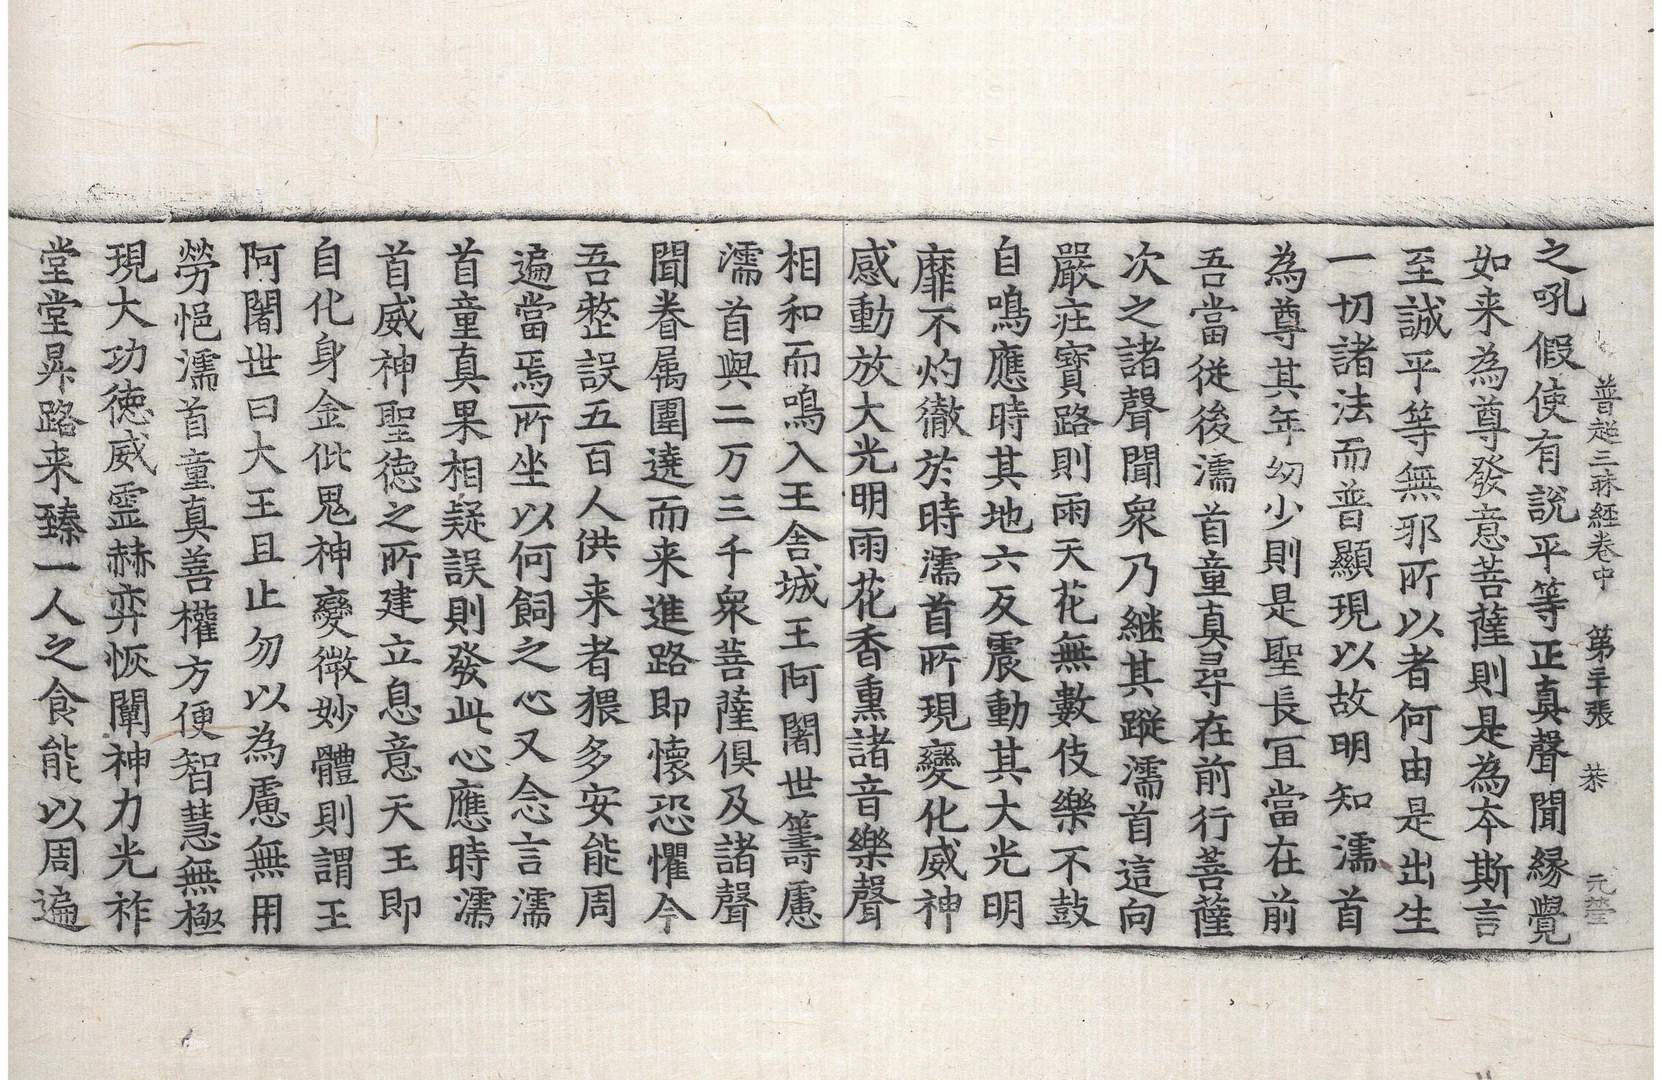 普超三昧經卷中 第二十張 恭 元瑩
之吼假使有說平等正真聲聞緣覺
如来為尊發意菩薩則是為夲斯言
至誠平等無邪所以者何由是出生
一切諸法而普顯現以故明知濡首
為尊其年㓜少則是聖長冝當在前
吾當従後濡首童真尋在前行菩薩
次之諸聲聞衆乃継其蹤濡首這向
嚴疘寳路則雨天花無數伎樂不鼓
自鳴應時其地六反震動其大光明
靡不灼徹於時濡首所現變化威神
感動放大光明雨花香熏諸音樂聲
相和而鳴入王舍城王阿闍世籌慮
濡首與二万三千衆菩薩俱及諸聲
聞眷属圍遶而来進路即懷恐懼今
吾整設五百人供来者猥多安能周
遍當焉所坐以何飼之心又念言濡
首童真果相疑誤則發此心應時濡
首威神聖徳之所建立息意天王即
自化身金仳鬼神變微妙體則謂王
阿闍世曰大王且止勿以為慮無用
勞悒濡首童真善權方便智慧無極
現大功徳威霊赫弈恢闡神力光祚
堂堂昇路来臻一人之食能以周遍